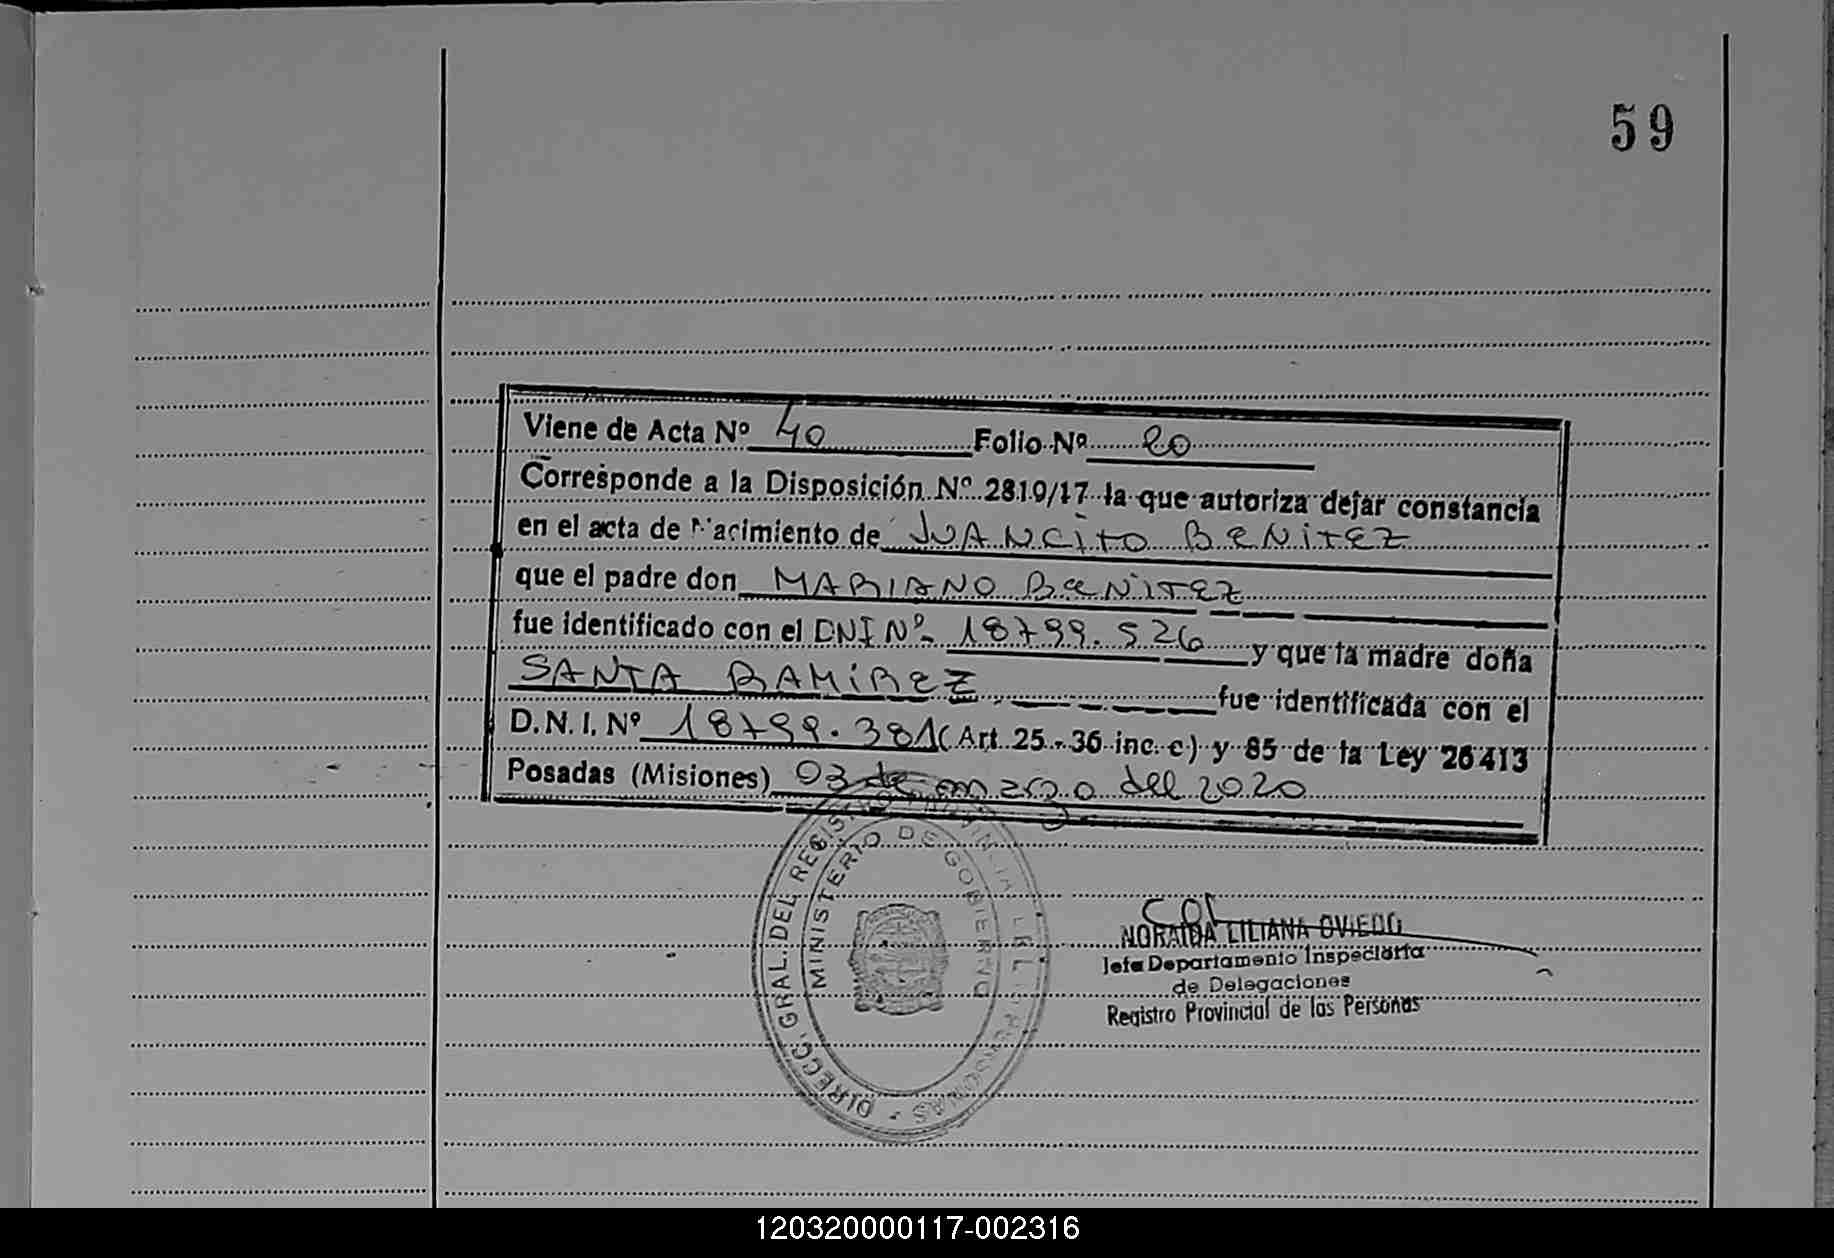 59
Viene de Acta Nº 40 Folio Nº 20
Corresponde a la Disposición Nº 2819/17 la que autoriza dejar constancia
en el acta de Nacimiento de JUANCITO BENITEZ
que el padre don MARIANO BENITEZ
fue identificado con el DNI Nº 18799.526 y que la madre doña
SANTA RAMIREZ fue identificada con el
D.N.I. Nº 18799.381 (Art. 25 - 36 inc. c) y 85 de la Ley 26413
Posadas (Misiones) 03 de marzo del 2020
DIRECC. GRAL. DEL REGISTRO PROVINCIAL DE LAS PERSONAS
MINISTERIO DE GOBIERNO
NORAIDA LILIANA OVIEDO
Jefa Departamento Inspectoría
de Delegaciones
Registro Provincial de las Personas
120320000117-002316